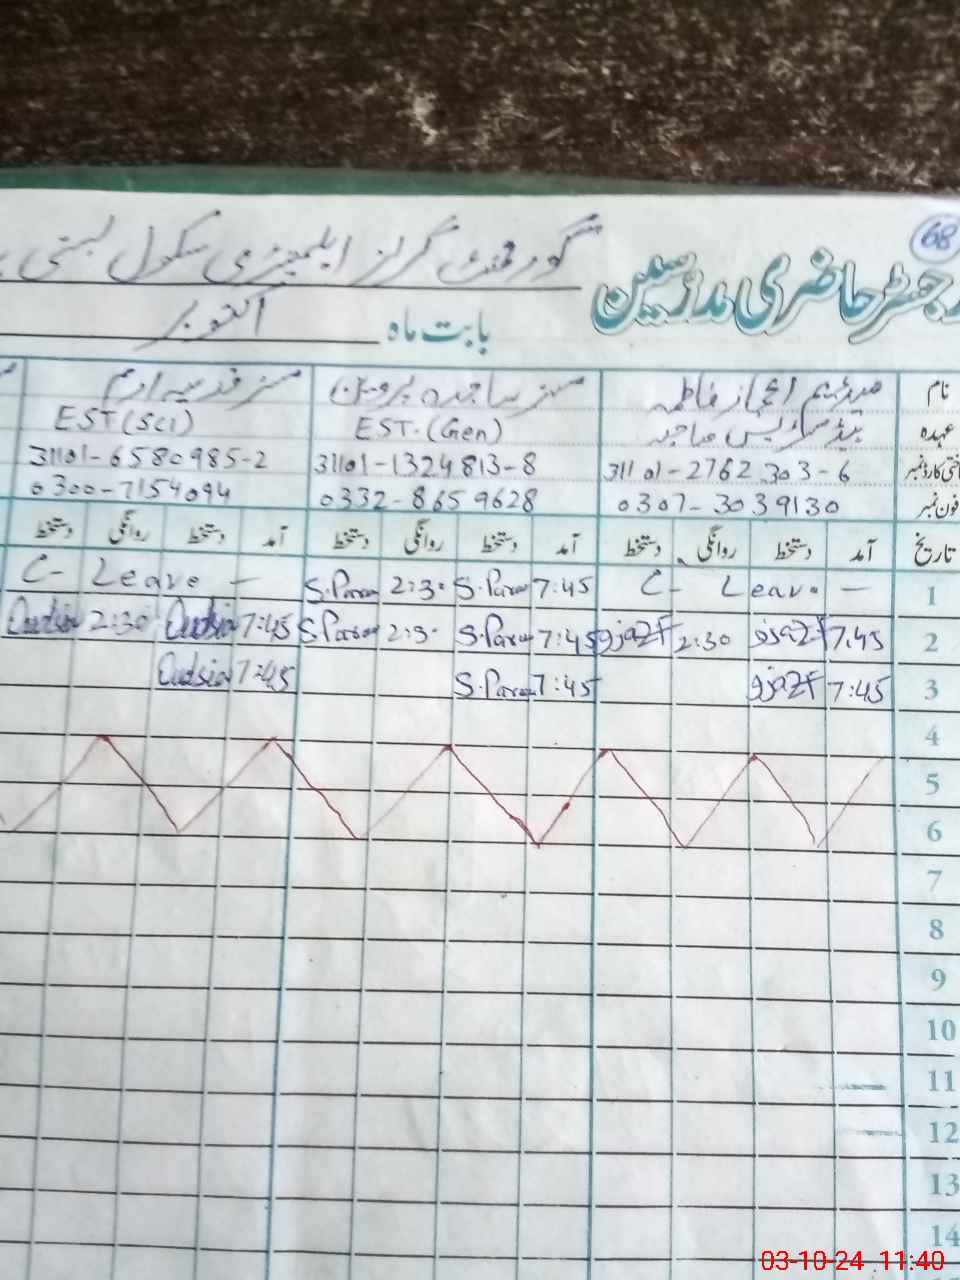 68
رجسٹر حاضری مدرسین گورنمنٹ گرلز ایلیمنٹری سکول بستی
بابت ماہ اکتوبر
نام میڈیم اعجاز فاطمہ مسز ساجدہ پروین مسز قدسیہ ارم
عہدہ ہیڈمسٹریس صاحبہ EST.(Gen) EST(Sci)
شناختی کارڈ نمبر 31101-2762303-6 31101-1324813-8 31101-6580985-2
فون نمبر 0307-3039130 0332-8659628 0300-7154094
تاریخ آمد دستخط روانگی دستخط آمد دستخط روانگی دستخط آمد دستخط روانگی دستخط
1 C- Leave — 7:45 S.Parv 2:30 S.Parv C- Leave —
2 7:45 2:30 7:45 S.Parv 2:30 S.Parv 7:45 Qudsia 2:30 Qudsia
3 7:45 7:45 S.Parv 7:45 Qudsia
4
5
6
7
8
9
10
11
12
13
14
03-10-24 11:40